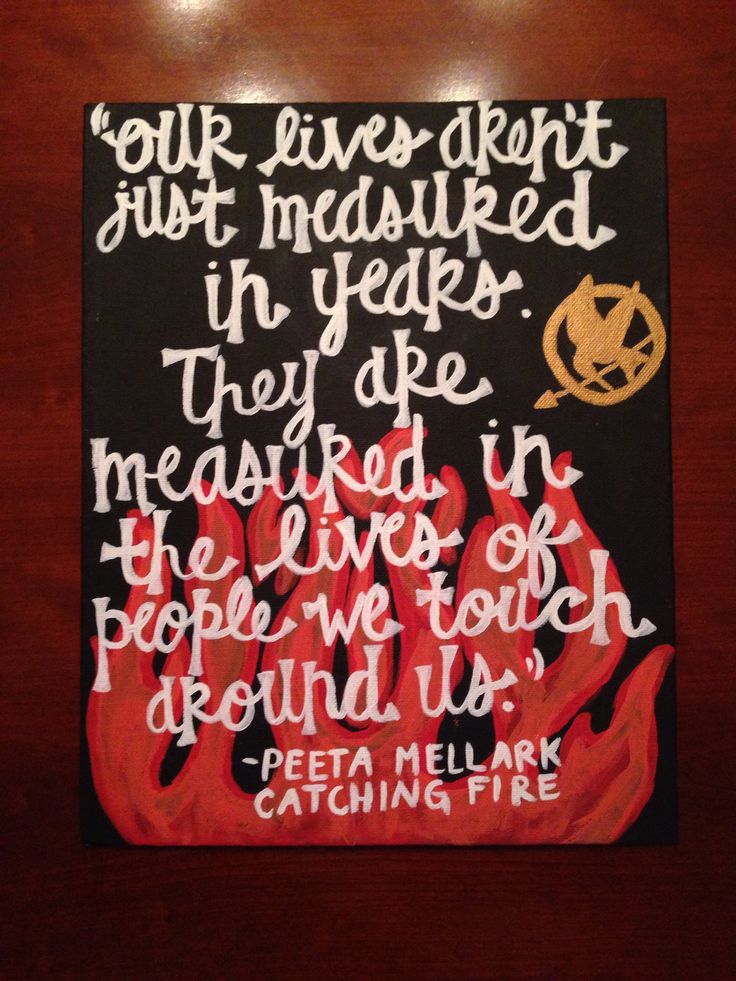 "Our lives aren't
just measured
in years.
They are
measured in
the lives of
people we touch
around us."
-PEETA MELLARK
CATCHING FIRE